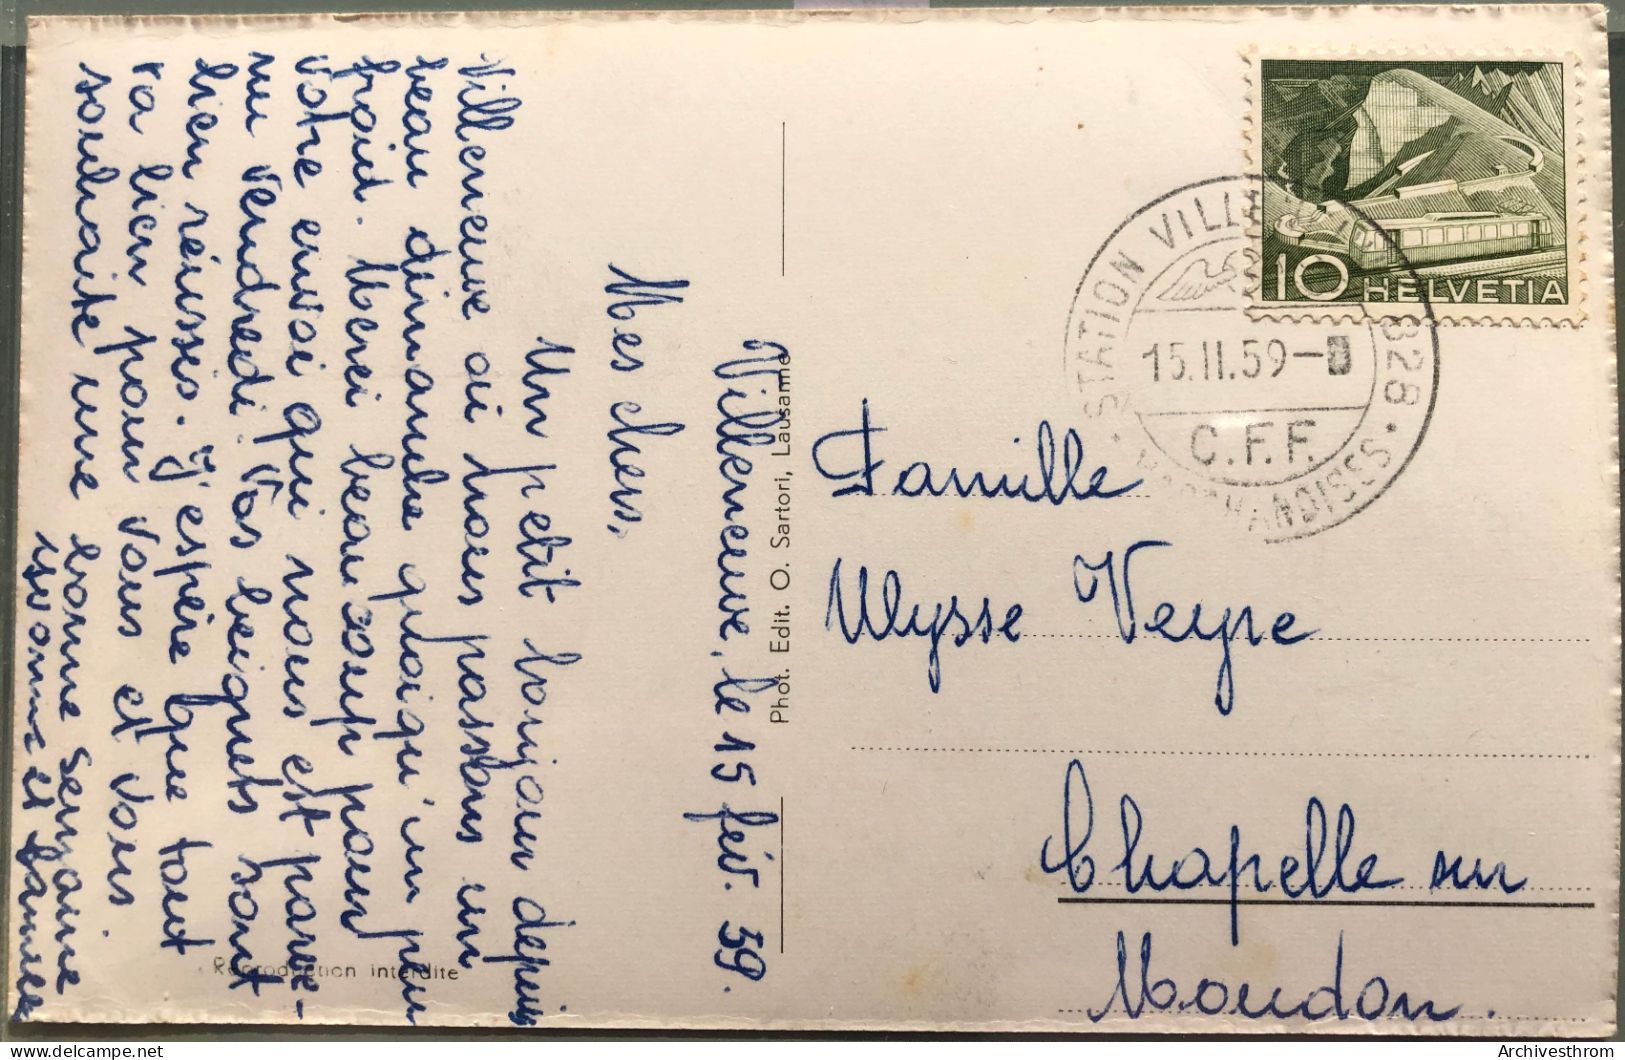 Villeneuve, le 15 fév. 59.
Mes chers,
Un petit bonjour depuis
Villeneuve où nous passons un
beau dimanche quoiqu'un peu
froid. Merci beaucoup pour
votre envoi qui nous est parve-
nu vendredi. Vos beignets sont
bien réussis. J'espère que tout
va bien pour vous et vous
souhaite une bonne semaine
Phot. Edit. O. Sartori, Lausanne
Reproduction interdite
10 HELVETIA
STATION VILL 828
15.II.59
C.F.F.
Famille
Ulysse Veyre
Chapelle sur
Moudon.
Archivesthrom
delcampe.net